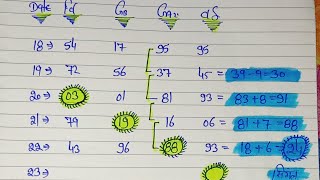 Date
18→ 54 17 95 95
19→ 72 56 37 45 = 39-9=30
20→ 03 01 81 93 = 83+8=91
21→ 79 19 16 06 = 81+7=88
22→ 43 96 88 93 = 18+6=
23→